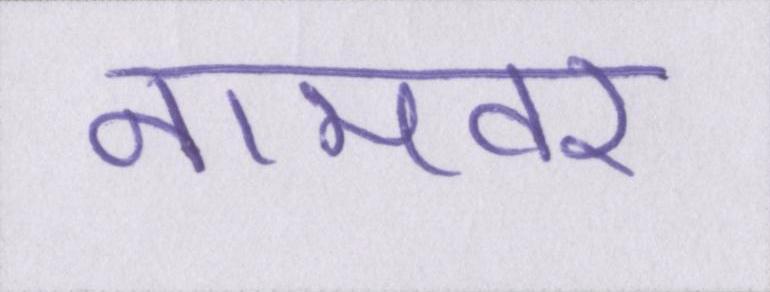 नामवर